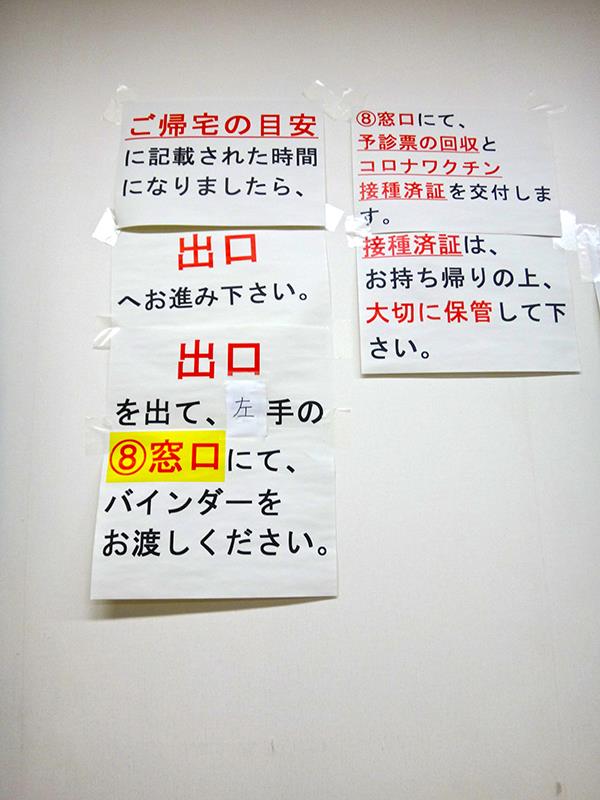 ご帰宅の目安
に記載された時間
になりましたら、
出口
へお進み下さい。
出口
を出て、左手の
⑧窓口にて、
バインダーを
お渡しください。
⑧窓口にて、
予診票の回収と
コロナワクチン
接種済証を交付しま
す。
接種済証は、
お持ち帰りの上、
大切に保管して下
さい。